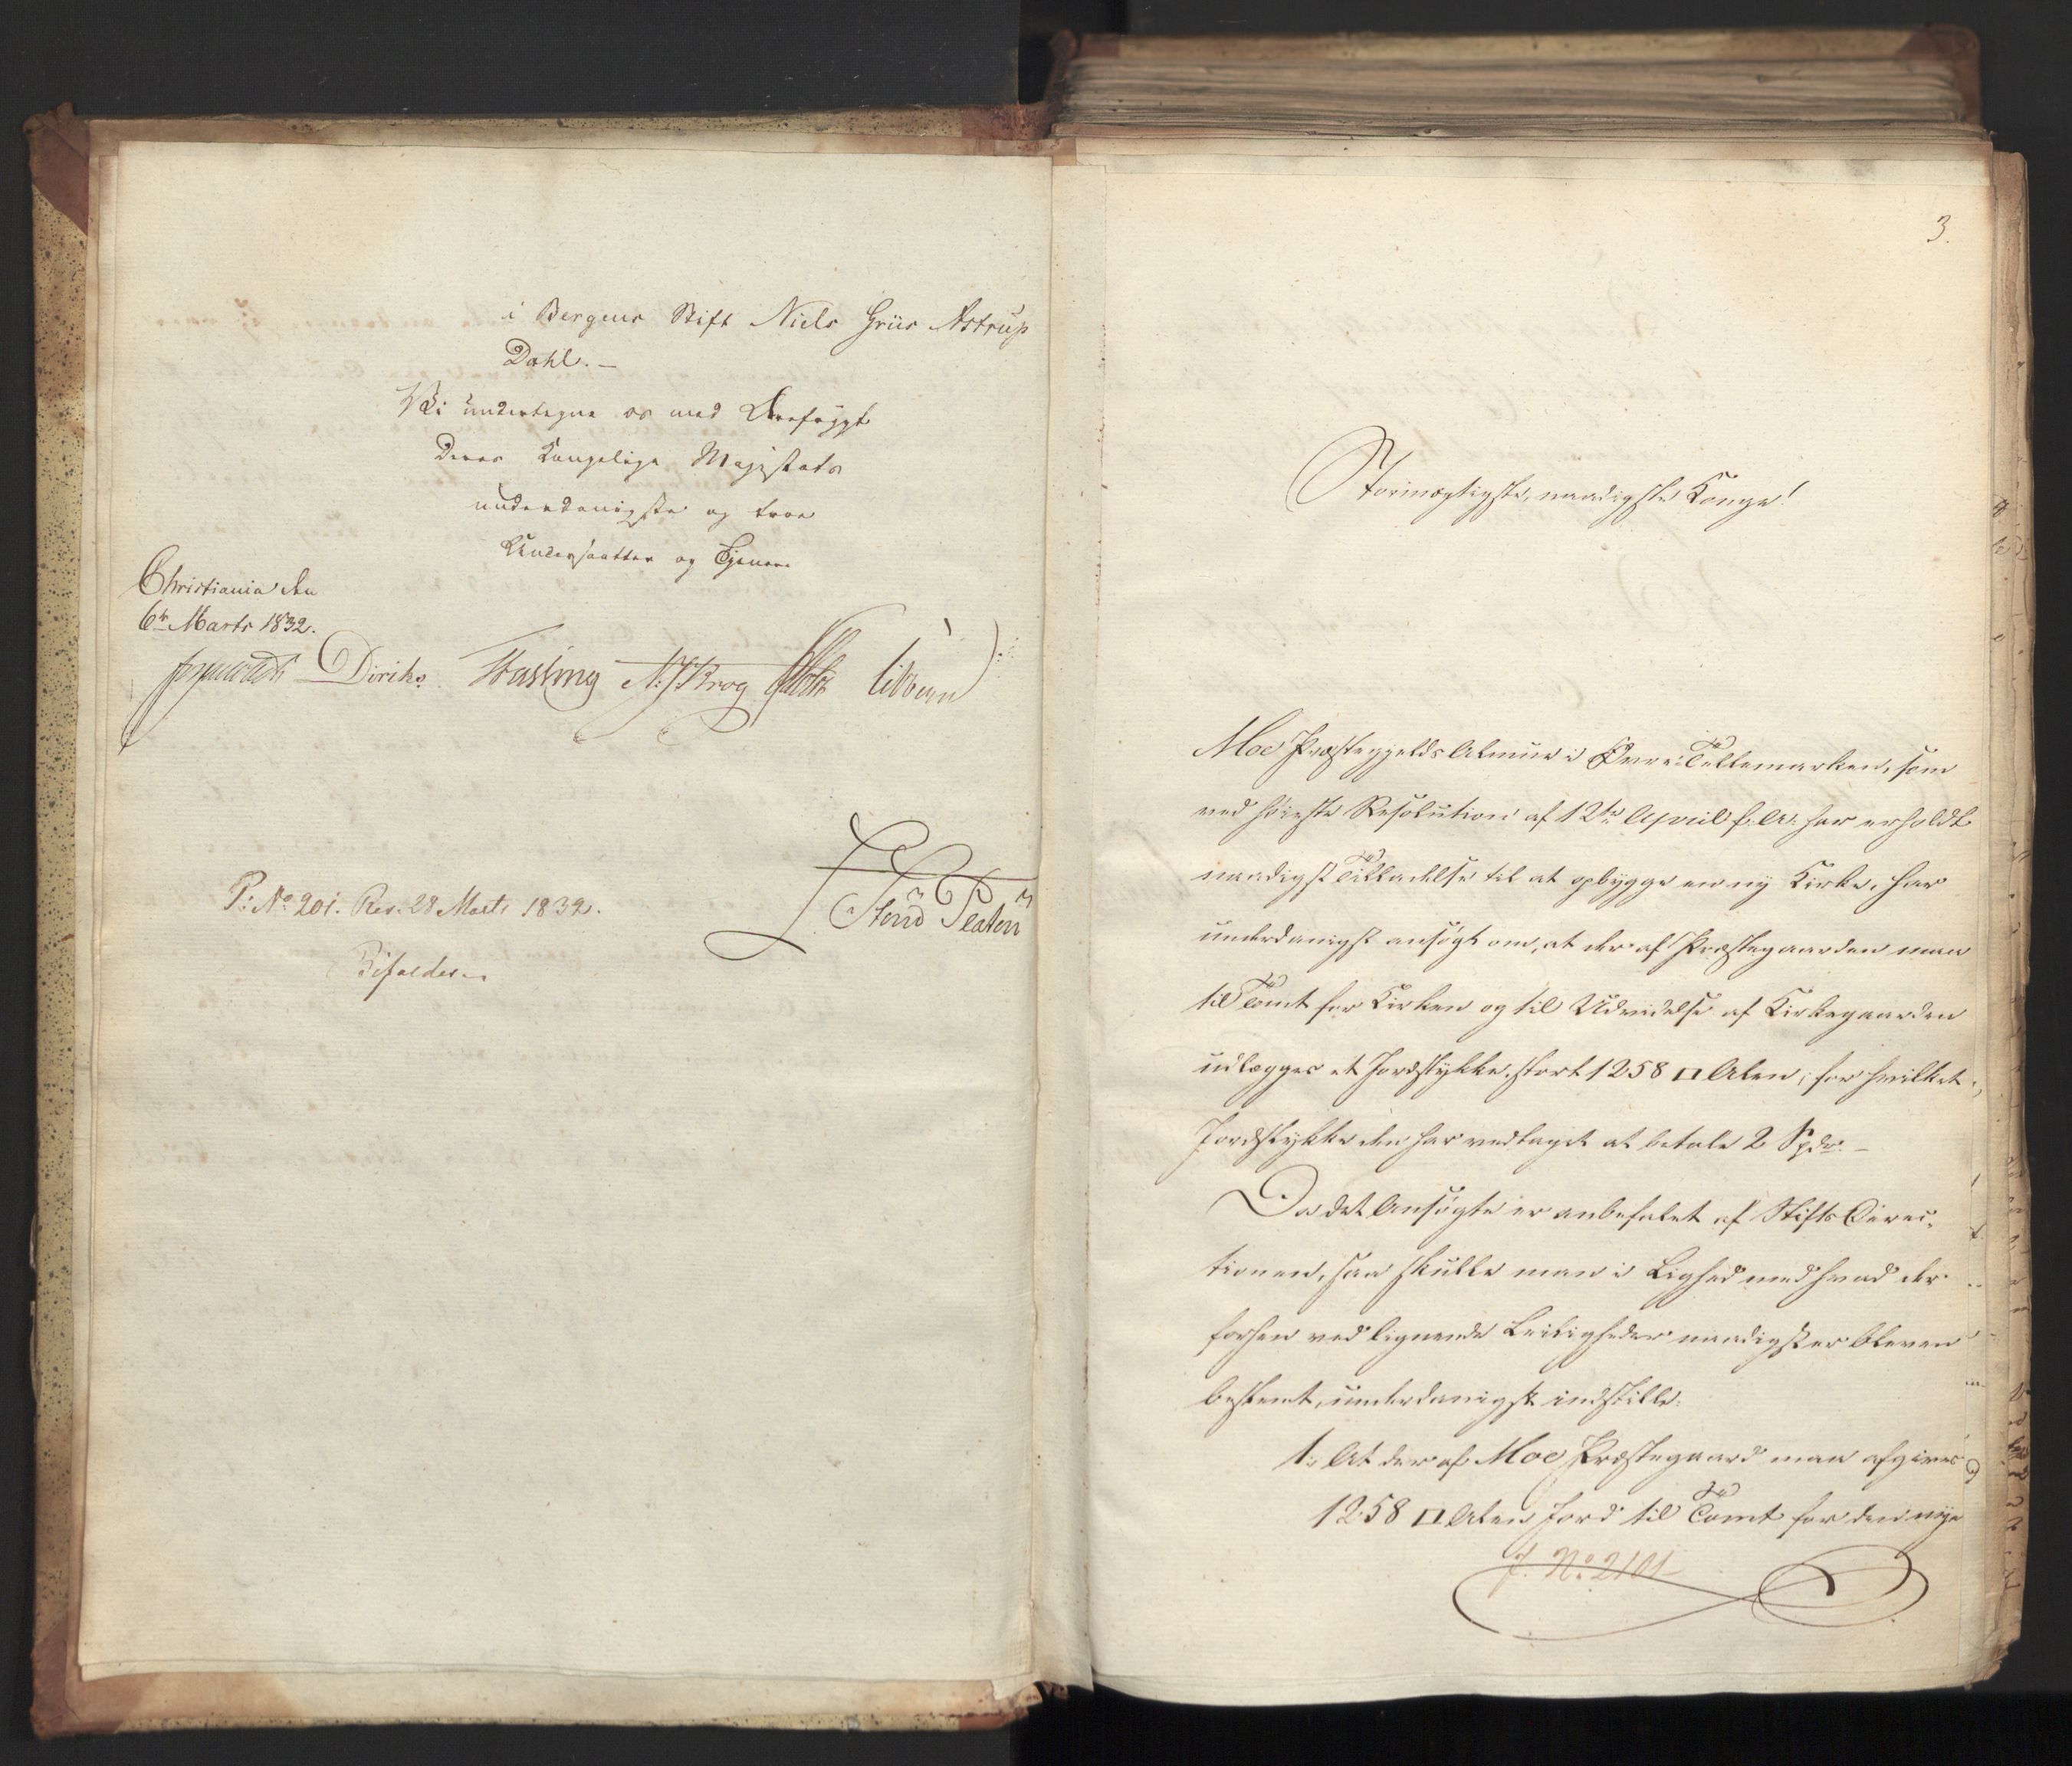 i Bergens Stift Niels Griis Astrup
Dahl. –
Vi undertegne os med Ærefrygt
Deres Kongelige Majestæts
underdanigste og troe
Undersaatter og Tjenere
Christiania den
6te Marts 1832.
Diriks. Fasting N. J. Krog
P: No 201. Res. 28 Marts 1832.
Bifaldes.
Platen
3.
Stormægtigste, naadigste Konge!
Moe Præstegjelds Almue i Øvre-Tellemarken, som
ved høieste Resolution af 12te April f. A. har erholdt
naadigst Tilladelse til at opbygge en ny Kirke, har
underdanigst ansøgt om, at der af Præstegaarden maa
til Tomt for Kirken og til Udvidelse af Kirkegaarden
udlægges et Jordstykke, stort 1258 □ Alen, for hvilket
Jordstykke den har vedtaget at betale 2 Spdr. –
Da det Ansøgte er anbefalet af Stifts Direc-
tionen, saa skulle man i Lighed med hvad der
forhen ved lignende Leiligheder naadigst er bleven
bestemt, underdanigst indstille:
1: At der af Moe Præstegaard maa afgives
1258 □ Alen Jord til Tomt for den nye
J. No 2101